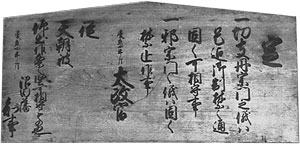 定
一切支丹宗門之儀ハ
是迄御制禁之通
固く可相守事
一邪宗門之儀ハ固く
禁止候事
慶應四年三月 太政官
従
天朝被